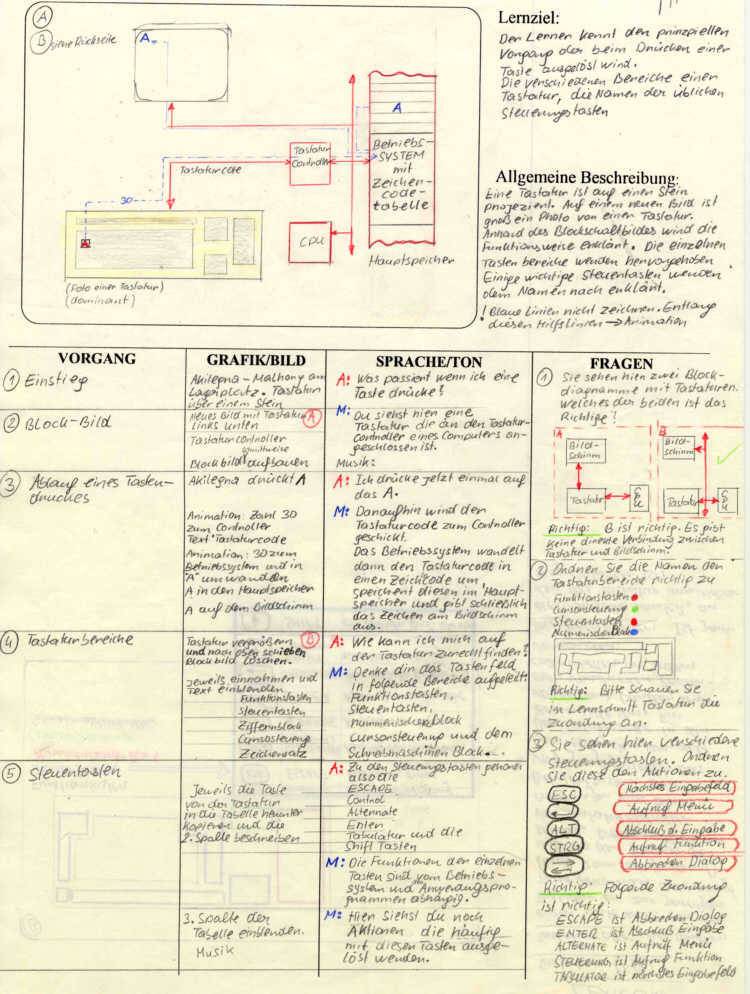 A
B siehe Rückseite
A
A
Betriebs-
SYSTEM
mit
Zeichen-
code-
tabelle
Tastatur
Controller
Tastaturcode
30
A
CPU
Hauptspeicher
(Foto einer Tastatur)
(dominant)
Lernziel:
Der Lerner kennt den prinzipiellen
Vorgang der beim Drücken einer
Taste ausgelöst wird.
Die verschiedenen Bereiche einer
Tastatur, die Namen der üblichen
Steuerungstasten
Allgemeine Beschreibung:
Eine Tastatur ist auf einen Stein
projeziert. Auf einem neuen Bild ist
groß ein Photo von einer Tastatur.
Anhand des Blockschaltbildes wird die
Funktionsweise erklärt. Die einzelnen
Tastenbereiche werden hervorgehoben
Einige wichtige Steuertasten werden
dem Namen nach erklärt.
! Blaue Linien nicht zeichnen. Entlang
diesen Hilfslinien → Animation
VORGANG
GRAFIK/BILD
SPRACHE/TON
FRAGEN
1 Einstieg
Akilegna - Malhony am
Lagerplatz. Tastatur
über einem Stein
A: Was passiert wenn ich eine
Taste drücke?
2 Block-Bild
neues Bild mit Tastatur A
links unten
Tastaturcontroller
schrittweise
Blockbild aufbauen
M: Du siehst hier eine
Tastatur die an den Tastatur-
controller eines Computers an-
geschlossen ist.
Musik:
3 Ablauf eines Tasten-
druckes
Akilegna drückt A
Animation: Zahl 30
zum Controller
Text: Tastaturcode
Animation: 30 zum
Betriebssystem und in
"A" umwandeln
A in den Hauptspeicher
A auf dem Bildschirm
A: Ich drücke jetzt einmal auf
das A.
M: Daraufhin wird der
Tastaturcode zum Controller
geschickt.
Das Betriebssystem wandelt
dann den Tastaturcode in
einen Zeichencode um,
speichert diesen im Haupt-
speicher und gibt schließlich
das Zeichen am Bildschirm
aus.
4 Tastaturbereiche
Tastatur vergrößern B
und nach oben schieben
Blockbild löschen.
Jeweils einrahmen und
Text einblenden
Funktionstasten
Steuertasten
Ziffernblock
Cursosteuerg
Zeichensatz
A: Wie kann ich mich auf
der Tastatur zurechtfinden?
M: Denke dir das Tastenfeld
in folgende Bereiche aufgeteilt:
Funktionstasten,
Steuertasten,
nummerischerblock
Cursorsteuerung und dem
Schreibmaschinen Block.
5 Steuertasten
Jeweils die Taste
von der Tastatur
in die Tabelle herunter
kopieren und die
2. Spalte beschreiben
3. Spalte der
Tabelle einblenden.
Musik
A: Zu den Steuerungstasten gehören
also die
ESCAPE
Control
Alternate
Enter
Tabulatur und die
Shift Tasten
M: Die Funktionen der einzelnen
Tasten sind vom Betriebs-
system und Anwendungspro-
grammen abhängig.
M: Hier siehst du noch
Aktionen die häufig
mit diesen Tasten ausge-
löst werden.
1 Sie sehen hier zwei Block-
diagramme mit Tastaturen.
Welches der beiden ist das
Richtige?
A
Bild-
schirm
Tastatur
CPU
B
Bild-
schirm
Tastatur
CPU
Richtig: B ist richtig. Es gibt
keine direkte Verbindung zwischen
Tastatur und Bildschirm.
2 Ordnen Sie die Namen den
Tastaturbereiche richtig zu
Funktionstasten
Cursorsteuerung
Steuertasten
Numerischer Block
Richtig: Bitte schauen Sie
im Lernschritt Tastatur die
Zuordnung an.
3 Sie sehen hier verschiedene
Steuerungstasten. Ordnen
Sie diese den Aktionen zu.
ESC
Nächstes Eingabefeld
Aufruf Menü
ALT
Abschluß d. Eingabe
STRG
Aufruf Funktion
Abbrechen Dialog
Richtig: Folgende Zuordnung
ist richtig:
ESCAPE ist Abbrechen Dialog
ENTER ist Abschluß Eingabe
ALTERNATE ist Aufruf Menü
STEUERUNG ist Aufruf Funktion
TABULATOR ist nächstes Eingabefeld